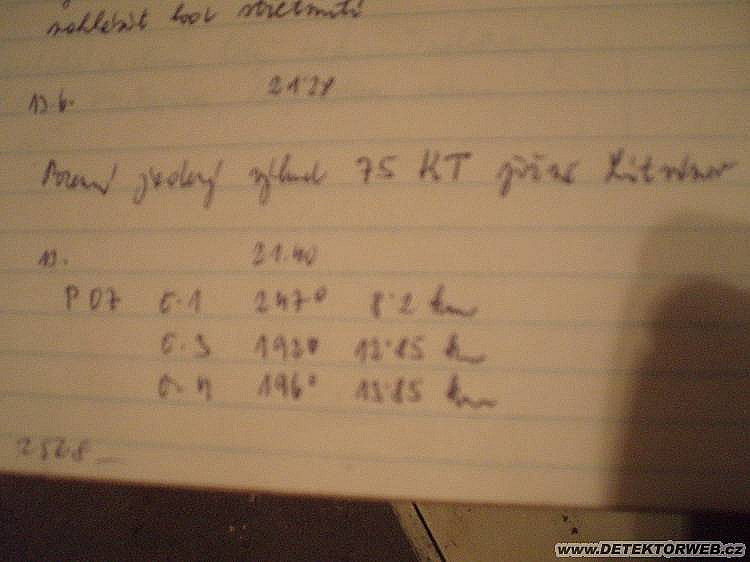 nahlásit bod stretnutí
13.6. 21.28
Pozemný jaderný výbuch 75 KT jižně Litvínov
13. 21.40
P07 č.1 247° 8.2 km
č.3 193° 12.85 km
č.4 196° 13.85 km
www.DETEKTORWEB.cz